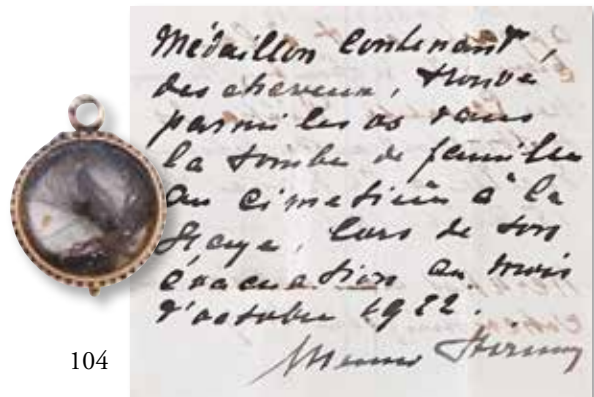 Médaillon Contenant,
des cheveux, trouvé
parmi les os dans
la tombe de famille
au cimetière à la
Haye, lors de son
évacuation au mois
d'octobre 1922.
104